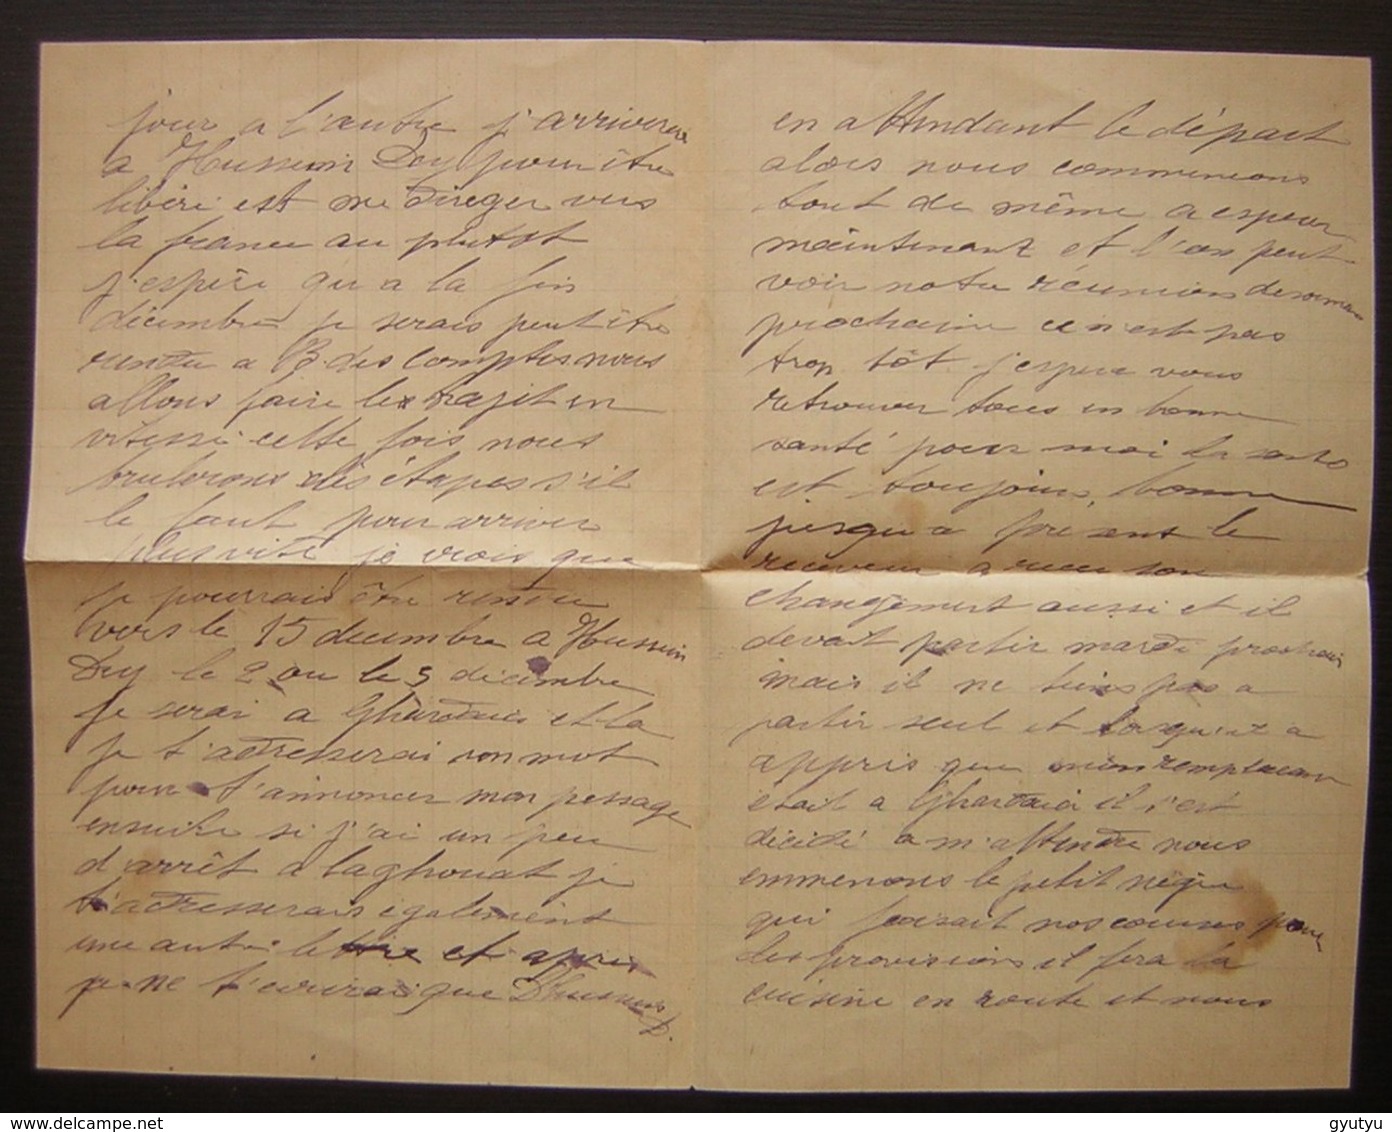 jour a l'autre j'arriverai
a Hussein Dey pour être
libéré est me diréger vers
la france au plutot
j'espère qu'a la fin
décembre je serais peut être
rendu a B. des comptes nous
allons faire le trajet en
vitesse cette fois nous
brulerons des étapes s'il
le faut pour arriver
plus vite je crois que
je pourrais être rendu
vers le 15 decembre a Hussein
Dey le 2 ou le 3 décembre
je serai a Ghardaia et la
je t'adresserai son mot
pour t'annoncer mon passage
ensuite si j'ai un peu
d'arrêt a laghouat je
t'adresserais également
une autre lettre et après
je ne t'ecrirai que D'hussein
D.
en attendant le départ
alors nous commencons
tout de même a esperer
maintenant et l'on peut
voir notre réunion desormais
prochaine ce n'est pas
trop tôt. j'espere vous
retrouver tous en bonne
santé pour moi la santé
est toujours bonne
jusqu'a présent le
receveur a recu son
changement aussi et il
devait partir mardi prochain
mais il ne tiens pas a
partir seul et lorsqu'il a
appris que mon remplacant
était a Ghardaia il s'est
décidé a m'attendre nous
emmenons le petit nègre
qui faisait nos courses pour
les provisions il fera la
cuisine en route et nous
delcampe.net
gyutyu